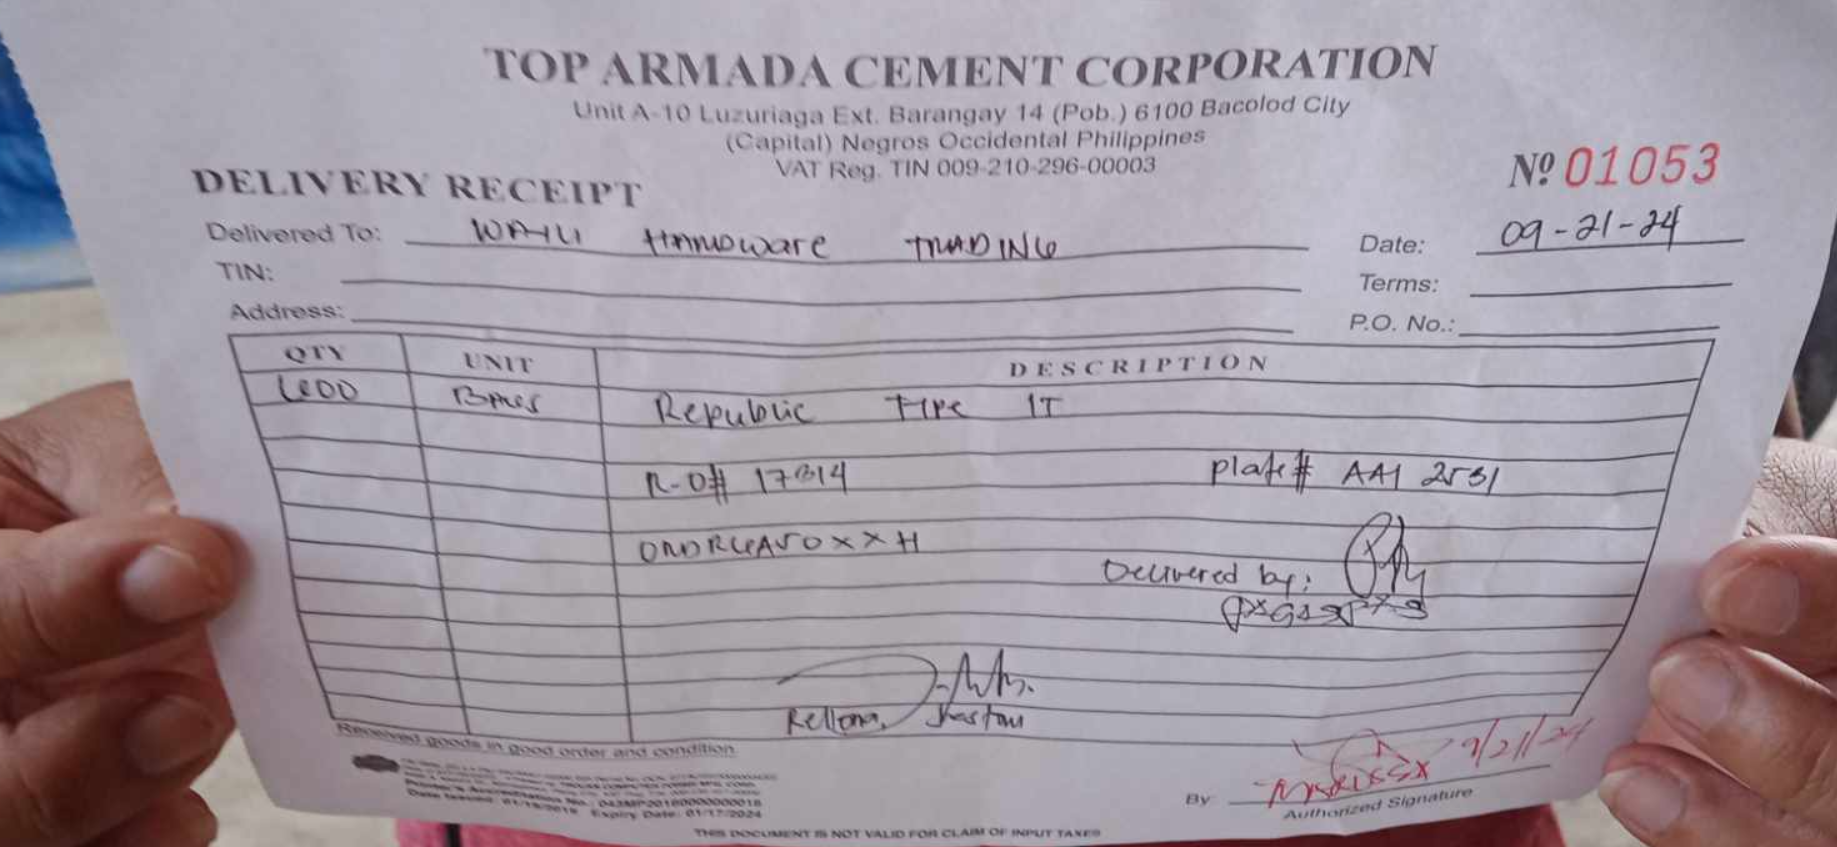 TOP ARMADA CEMENT CORPORATION
Unit A-10 Luzuriaga Ext. Barangay 14 (Pob.) 6100 Bacolod City
(Capital) Negros Occidental Philippines
VAT Reg. TIN 009-210-296-00003
DELIVERY RECEIPT
Nº 01053
Delivered To: Hardware TRADING
Date: 09-21-24
TIN:
Terms:
Address:
P.O. No.:
QTY UNIT DESCRIPTION
600 Bags Republic Type 1T
R-O# 17814 plate# AAI 2531
Delivered by:
Rellona,
Received goods in good order and condition
Printer's Accreditation No.: 042MP20180000000018
Date Issued: 01/18/2019 Expiry Date: 01/17/2024
9/21/24
By
Authorized Signature
THIS DOCUMENT IS NOT VALID FOR CLAIM OF INPUT TAXES